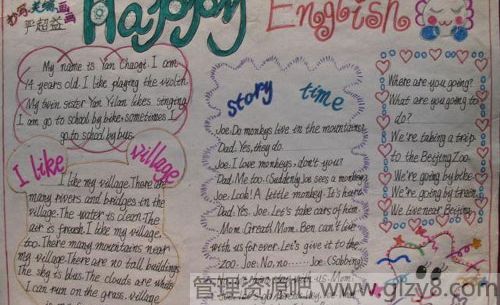 Happy English
书写.美编.画画
严超益
My name is Yan Chaoyi I am
14 years old. I like playing the violin.
My twin sister Yan Yilan likes singing.
I am go to school by bike, sometimes I
go to school by bus.
I like village
I like my village. There are
many rivers and bridges in the
village. The water is clean. The
air is fresh. I like my village,
too. There many mountains near
my village. There are no tall buildings.
The sky is blue. The clouds are white
I can run on the grass. village
story time
Joe: Do monkeys live in the mountains
Dad: Yes, they do.
Joe: I love monkeys. don't you?
Dad: Me too. (Suddenly Joe sees a monkey)
Joe: Look! A little monkey. It's hurt.
Dad: Yes. Joe. Let's take cars of him
Mom: Great! Mom: Ben can't live
with us for ever. Let's give it to the
zoo. Joe: No, no...... Joe: (Sobbing)
Where are you going?
What are you going to
do?
We're taking a trip
to the Beijing Zoo.
We're going by bike
We're going by train
We live near Beijing
管理资源吧.www.glzy8.com